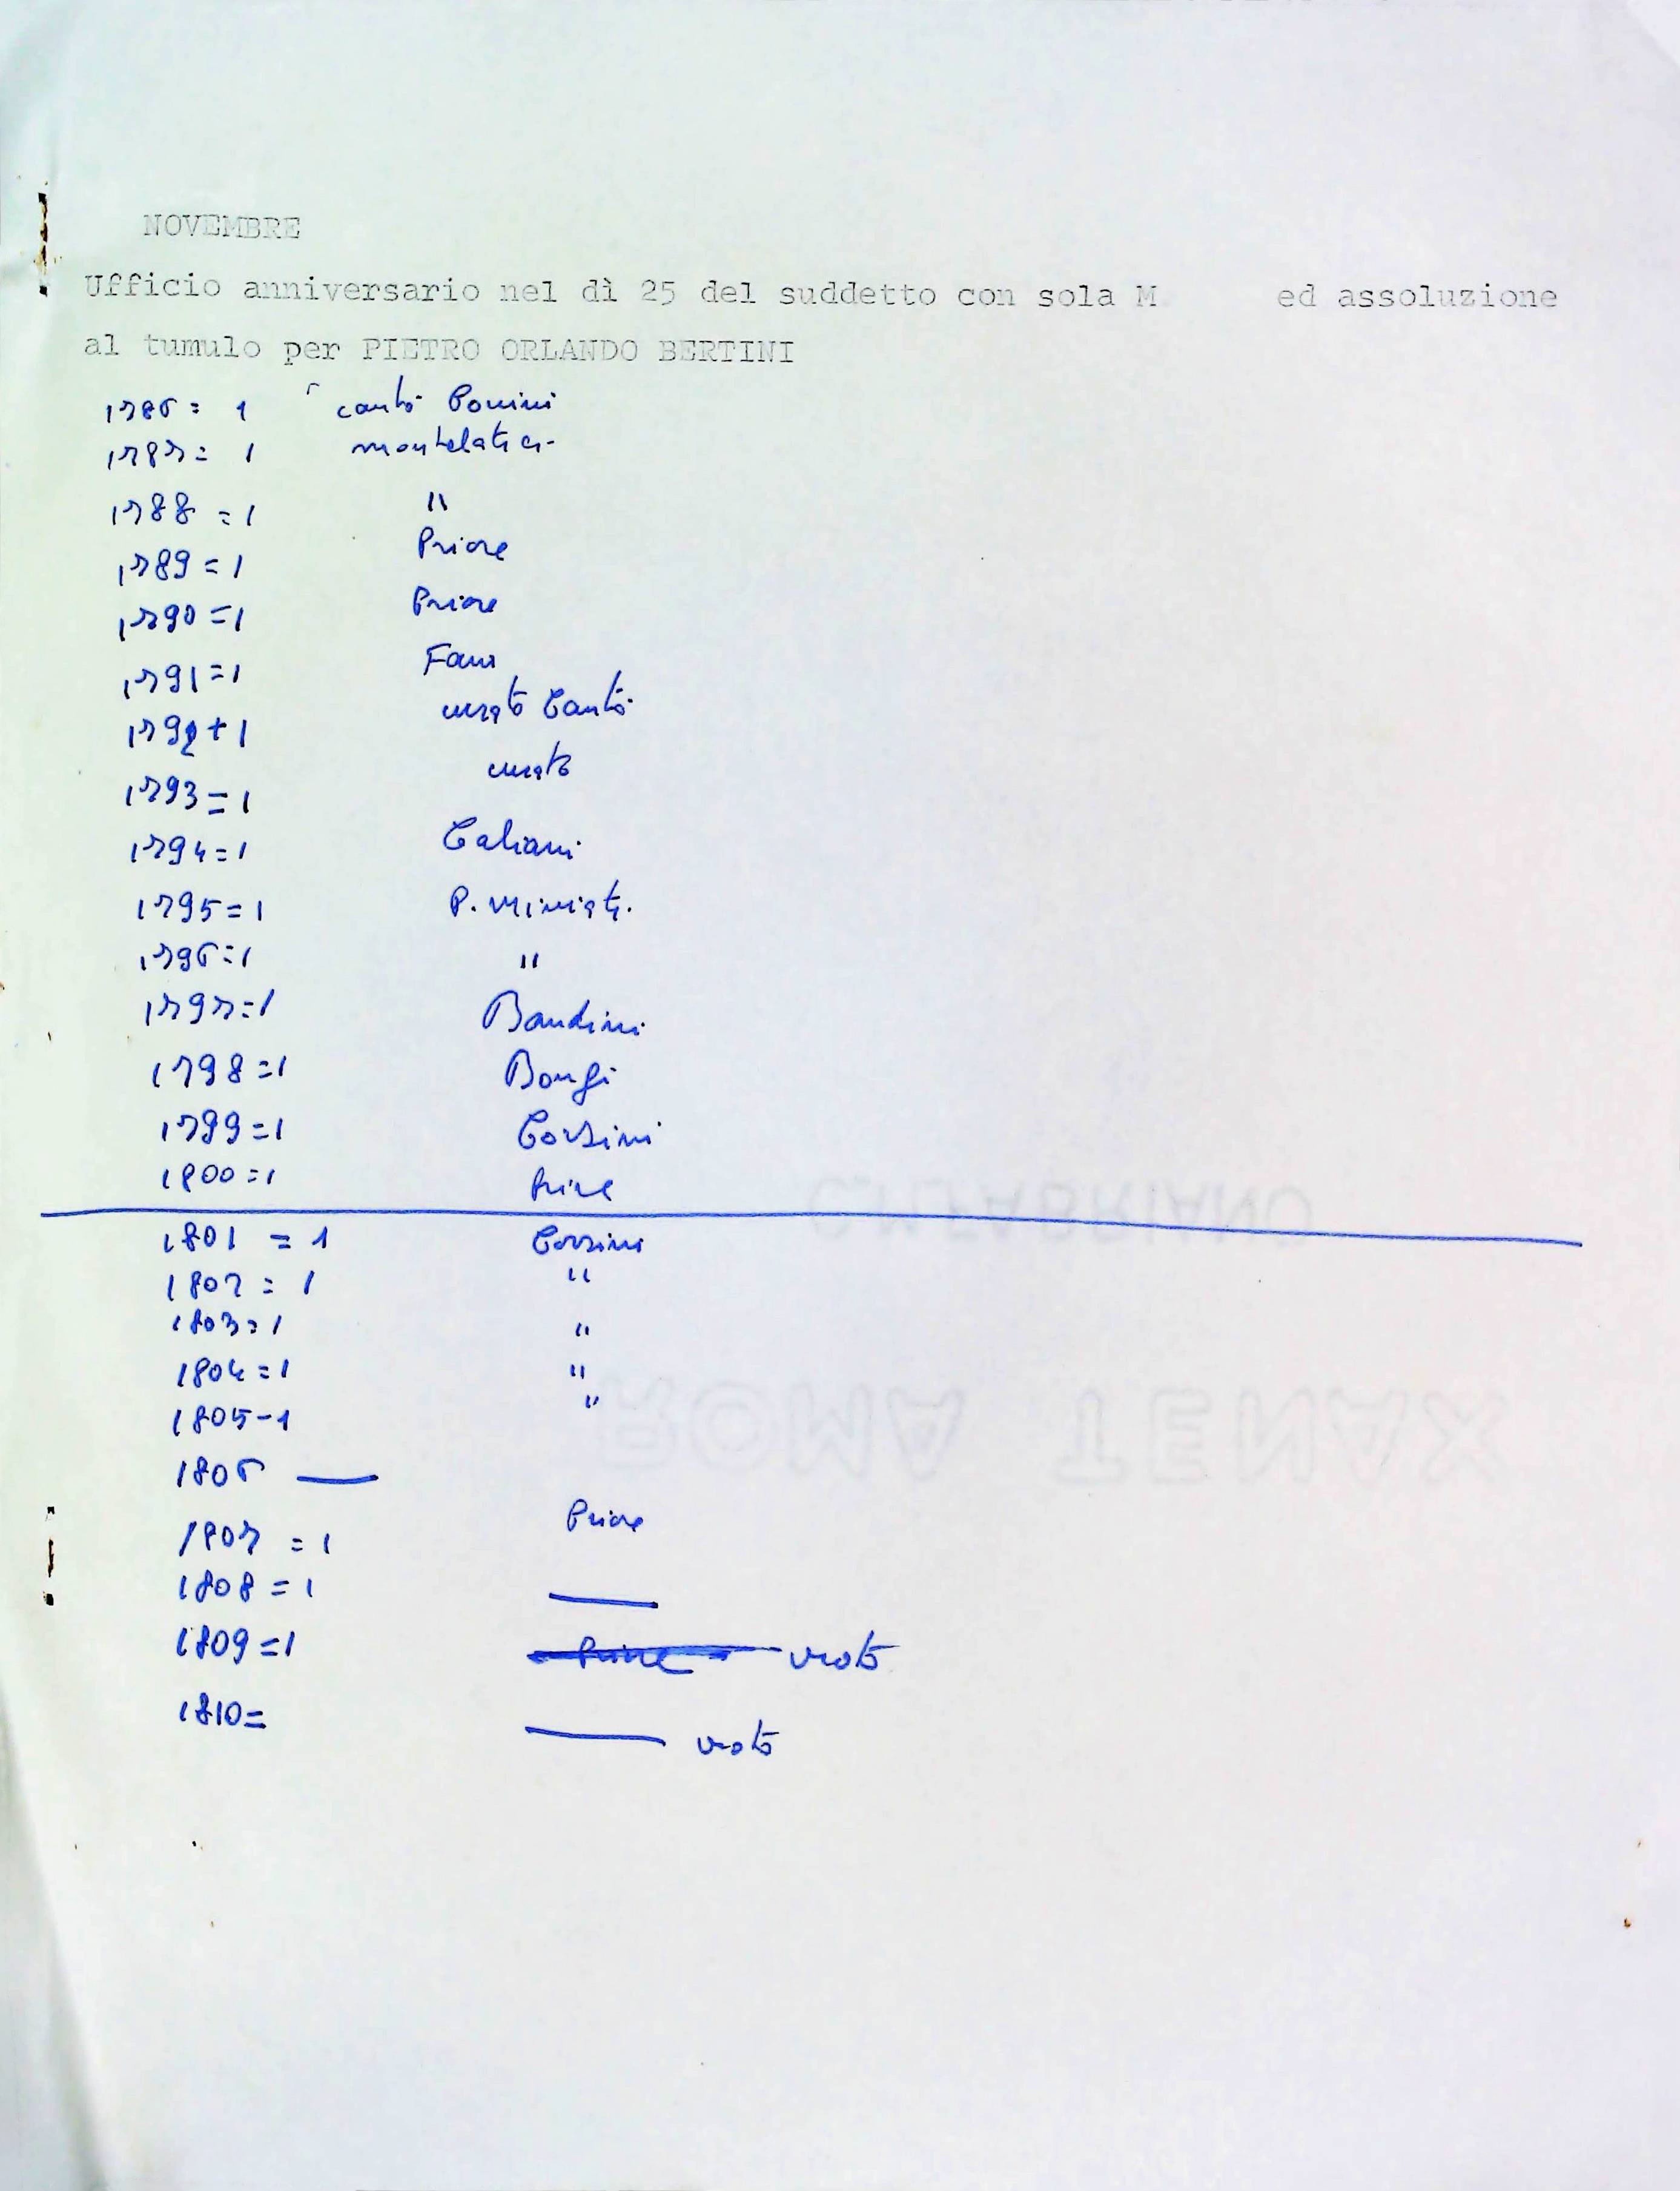 NOVEMBRE
Ufficio anniversario nel dì 25 del suddetto con sola M ed assoluzione
al tumulo per PIETRO ORLANDO BERTINI
1786 = 1 cantò
1787 = 1 montelatici
1788 = 1 "
1789 = 1 Priore
1790 = 1 Priore
1791 = 1
1792 + 1 curato Cantò
1793 = 1 curato
1794 = 1 Caliani
1795 = 1 P. Miniati.
1796 = 1 "
1797 = 1 Bandini
1798 = 1 Bongi
1799 = 1 Corsini
1800 = 1 Priore
1801 = 1 Corsini
1802 = 1 "
1803 = 1 "
1804 = 1 "
1805 - 1 "
1806 —
1807 = 1 Priore
1808 = 1 —
1809 = 1 Priore vuoto
1810 = — vuoto
C.M.FABRIANO
ROMA TENAX